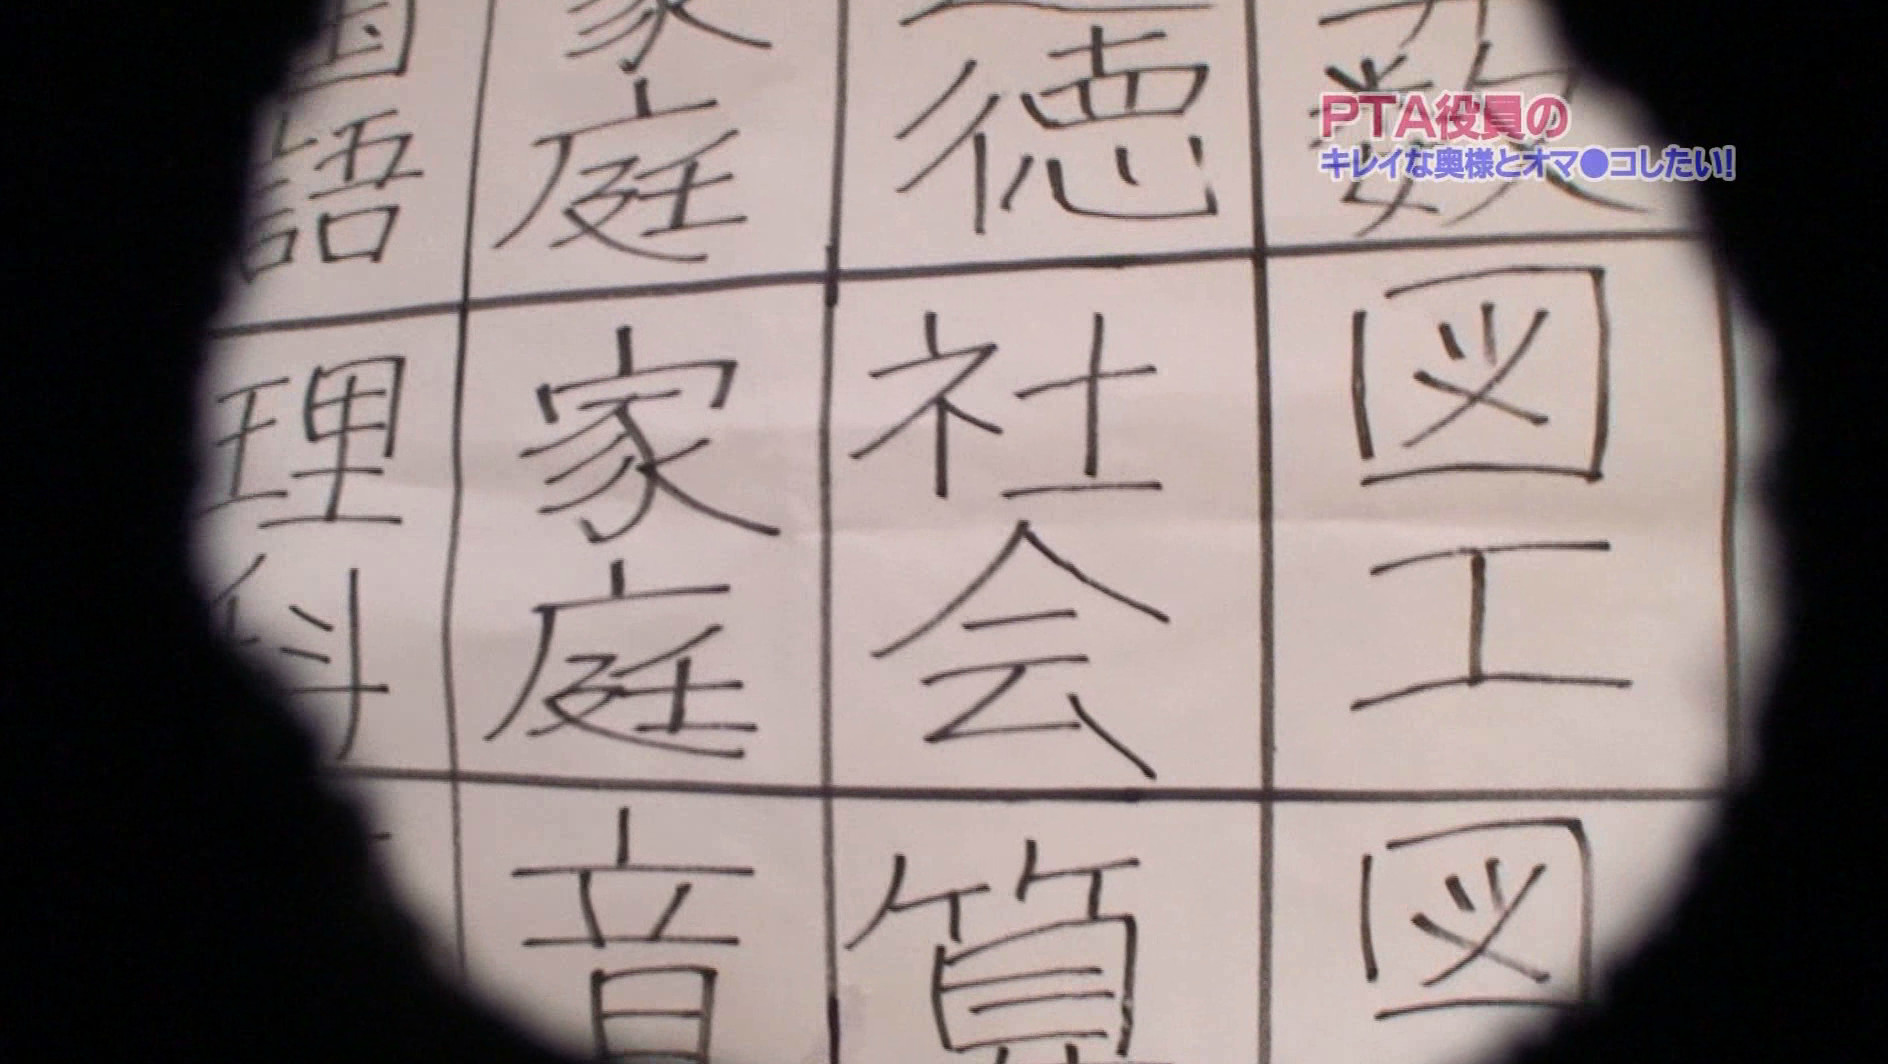 PTA役員の
キレイな奥様とオマ●コしたい!
数
図工
図
徳
社会
算
家庭
家庭
音
国語
理科